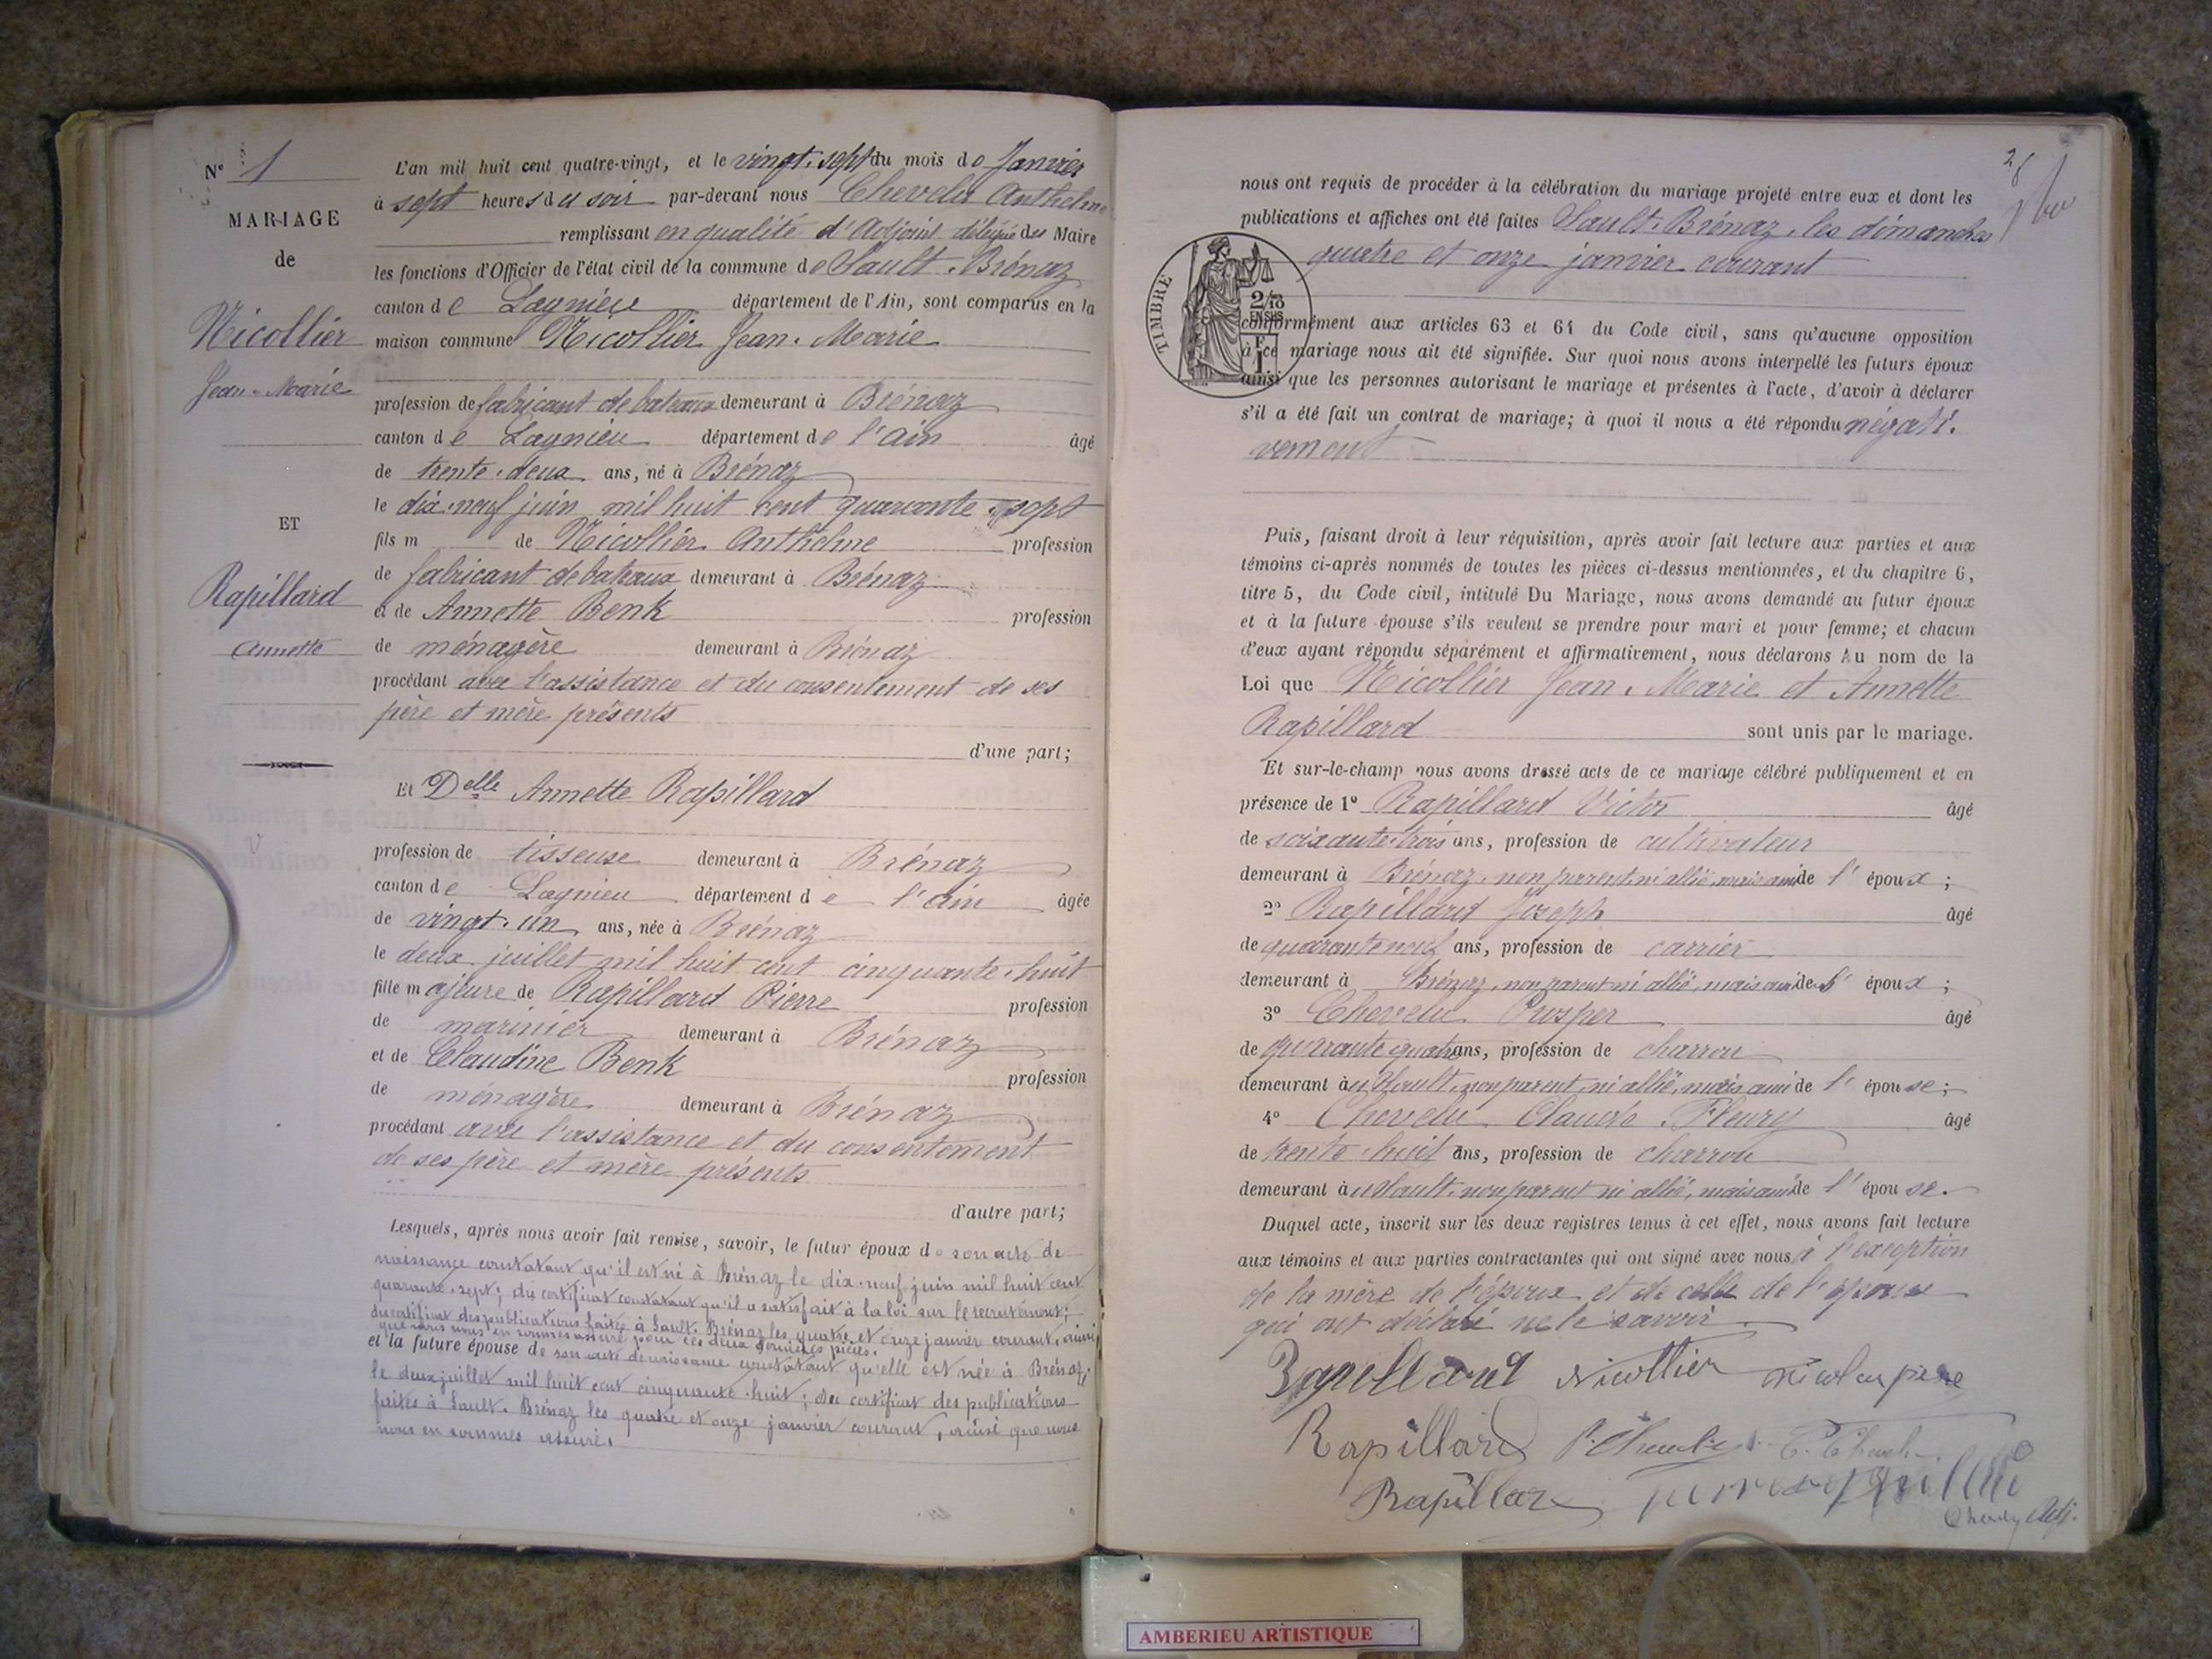 N° 1
MARIAGE
de
Nicollier
Jean-Marie
ET
Rapillard
Annette
L'an mil huit cent quatre-vingt, et le vingt-sept du mois de Janvier
à sept heures du soir par-devant nous Chevelu Anthelme
remplissant en qualité d'Adjoint délégué du Maire
les fonctions d'Officier de l'état civil de la commune de Sault-Brénaz
canton de Lagnieu département de l'Ain, sont comparus en la
maison commune Nicollier Jean-Marie
profession de fabricant de bateaux demeurant à Brénaz
canton de Lagnieu département de l'Ain âgé
de trente-deux ans, né à Brénaz
le dix-neuf juin mil huit cent quarante-sept
fils m de Nicollier Anthelme profession
de fabricant de bateaux demeurant à Brénaz
et de Annette Benk profession
de ménagère demeurant à Brénaz
procédant avec l'assistance et du consentement de ses
père et mère présents
d'une part;
Et Delle Annette Rapillard
profession de tisseuse demeurant à Brénaz
canton de Lagnieu département de l'Ain âgée
de vingt-un ans, née à Brénaz
le deux juillet mil huit cent cinquante-huit
fille majeure de Rapillard Pierre profession
de marinier demeurant à Brénaz
et de Claudine Benk profession
de ménagère demeurant à Brénaz
procédant avec l'assistance et du consentement
de ses père et mère présents
d'autre part;
Lesquels, après nous avoir fait remise, savoir, le futur époux de son acte de
naissance constatant qu'il est né à Brénaz le dix-neuf juin mil huit cent
quarante-sept; du certificat constatant qu'il a satisfait à la loi sur le recrutement;
du certificat des publications faites à Sault-Brénaz les quatre et onze janvier courant, ainsi
que nous nous en sommes assuré pour ces deux dernières pièces.
et la future épouse de son acte de naissance constatant qu'elle est née à Brénaz
le deux juillet mil huit cent cinquante-huit; du certificat des publications
faites à Sault-Brénaz les quatre et onze janvier courant, ainsi que nous
nous en sommes assuré.
28
nous ont requis de procéder à la célébration du mariage projeté entre eux et dont les
publications et affiches ont été faites Sault-Brénaz, les dimanches
quatre et onze janvier courant
TIMBRE
2/10
EN SUS
conformément aux articles 63 et 64 du Code civil, sans qu'aucune opposition
à ce mariage nous ait été signifiée. Sur quoi nous avons interpellé les futurs époux
ainsi que les personnes autorisant le mariage et présentes à l'acte, d'avoir à déclarer
s'il a été fait un contrat de mariage; à quoi il nous a été répondu négati-
vement
Puis, faisant droit à leur réquisition, après avoir fait lecture aux parties et aux
témoins ci-après nommés de toutes les pièces ci-dessus mentionnées, et du chapitre 6,
titre 5, du Code civil, intitulé Du Mariage, nous avons demandé au futur époux
et à la future épouse s'ils veulent se prendre pour mari et pour femme; et chacun
d'eux ayant répondu séparément et affirmativement, nous déclarons Au nom de la
Loi que Nicollier Jean-Marie et Annette
Rapillard sont unis par le mariage.
Et sur-le-champ nous avons dressé acte de ce mariage célébré publiquement et en
présence de 1° Rapillard Victor âgé
de soixante-trois ans, profession de cultivateur
demeurant à Brénaz, non parent ni allié, mais ami de l'époux;
2° Rapillard Joseph âgé
de quarante neuf ans, profession de carrier
demeurant à Brénaz, non parent ni allié, mais ami de l'époux;
3° Chevelu Prosper âgé
de quarante quatre ans, profession de charron
demeurant au Sault, non parent ni allié, mais ami de l'épouse;
4° Chevelu Claude-Fleury âgé
de trente-huit ans, profession de charron
demeurant au Sault, non parent ni allié, mais ami de l'épouse.
Duquel acte, inscrit sur les deux registres tenus à cet effet, nous avons fait lecture
aux témoins et aux parties contractantes qui ont signé avec nous à l'exception
de la mère de l'époux et de celle de l'épouse
qui ont déclaré ne le savoir.
Rapillard Nicollier
Rapillard
Rapillard
Adj.
AMBERIEU ARTISTIQUE